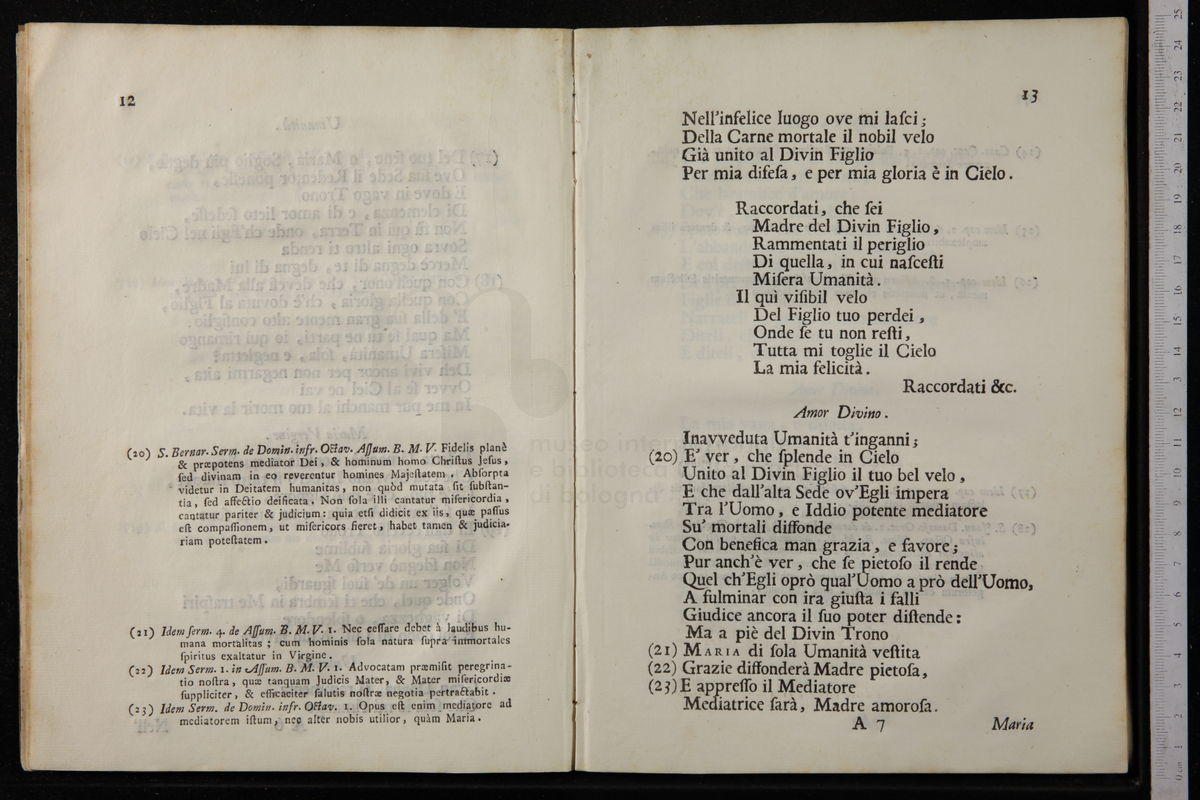 12
(20) S. Bernar. Serm. de Domin. infr. Octav. Aſſum. B. M. V. Fidelis planè
& præpotens mediator Dei, & hominum homo Chriſtus Jeſus,
ſed divinam in eo reverentur homines Majeſtatem. Abſorpta
videtur in Deitatem humanitas, non quòd mutata ſit ſubſtan-
tia, ſed affectio deificata. Non ſola illi cantatur miſericordia,
cantatur pariter & judicium: quia etſi didicit ex iis, quæ paſſus
eſt compaſſionem, ut miſericors fieret, habet tamen & judicia-
riam poteſtatem.
(21) Idem ſerm. 4. de Aſſum. B. M. V. 1. Nec ceſſare debet à laudibus hu-
mana mortalitas; cum hominis ſola natura ſupra immortales
ſpiritus exaltatur in Virgine.
(22) Idem Serm. 1. in Aſſum. B. M. V. 1. Advocatam præmiſit peregrina-
tio noſtra, quæ tanquam Judicis Mater, & Mater miſericordiæ
ſuppliciter, & efficaciter ſalutis noſtræ negotia pertractabit.
(23) Idem Serm. de Domin. infr. Octav. 1. Opus eſt enim mediatore ad
mediatorem iſtum, nec alter nobis utilior, quàm Maria.
13
Nell'infelice luogo ove mi laſci;
Della Carne mortale il nobil velo
Già unito al Divin Figlio
Per mia difeſa, e per mia gloria è in Cielo.
Raccordati, che ſei
Madre del Divin Figlio,
Rammentati il periglio
Di quella, in cui naſceſti
Miſera Umanità.
Il quì viſibil velo
Del Figlio tuo perdei,
Onde ſe tu non reſti,
Tutta mi toglie il Cielo
La mia felicità.
Raccordati &c.
Amor Divino.
Inavveduta Umanità t'inganni;
(20) E' ver, che ſplende in Cielo
Unito al Divin Figlio il tuo bel velo,
E che dall'alta Sede ov'Egli impera
Tra l'Uomo, e Iddio potente mediatore
Su' mortali diffonde
Con benefica man grazia, e favore;
Pur anch'è ver, che ſe pietoſo il rende
Quel ch'Egli oprò qual'Uomo a prò dell'Uomo,
A fulminar con ira giuſta i falli
Giudice ancora il ſuo poter diſtende:
Ma a piè del Divin Trono
(21) MARIA di ſola Umanità veſtita
(22) Grazie diffonderà Madre pietoſa,
(23) E appreſſo il Mediatore
Mediatrice ſarà, Madre amoroſa.
A 7 Maria